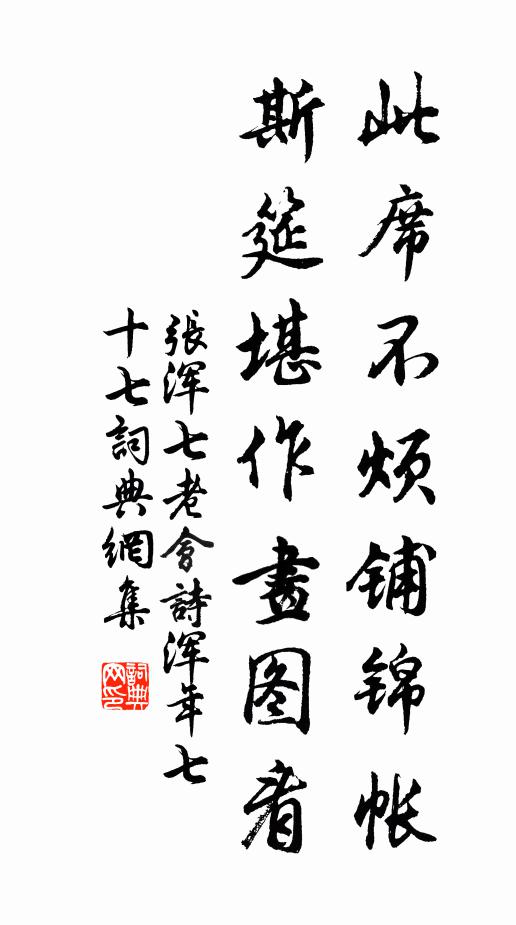 此席不煩铺锦帐
斯筵堪作畫图看
張渾七老會詩渾年七
十七詞典網集
詞典网印